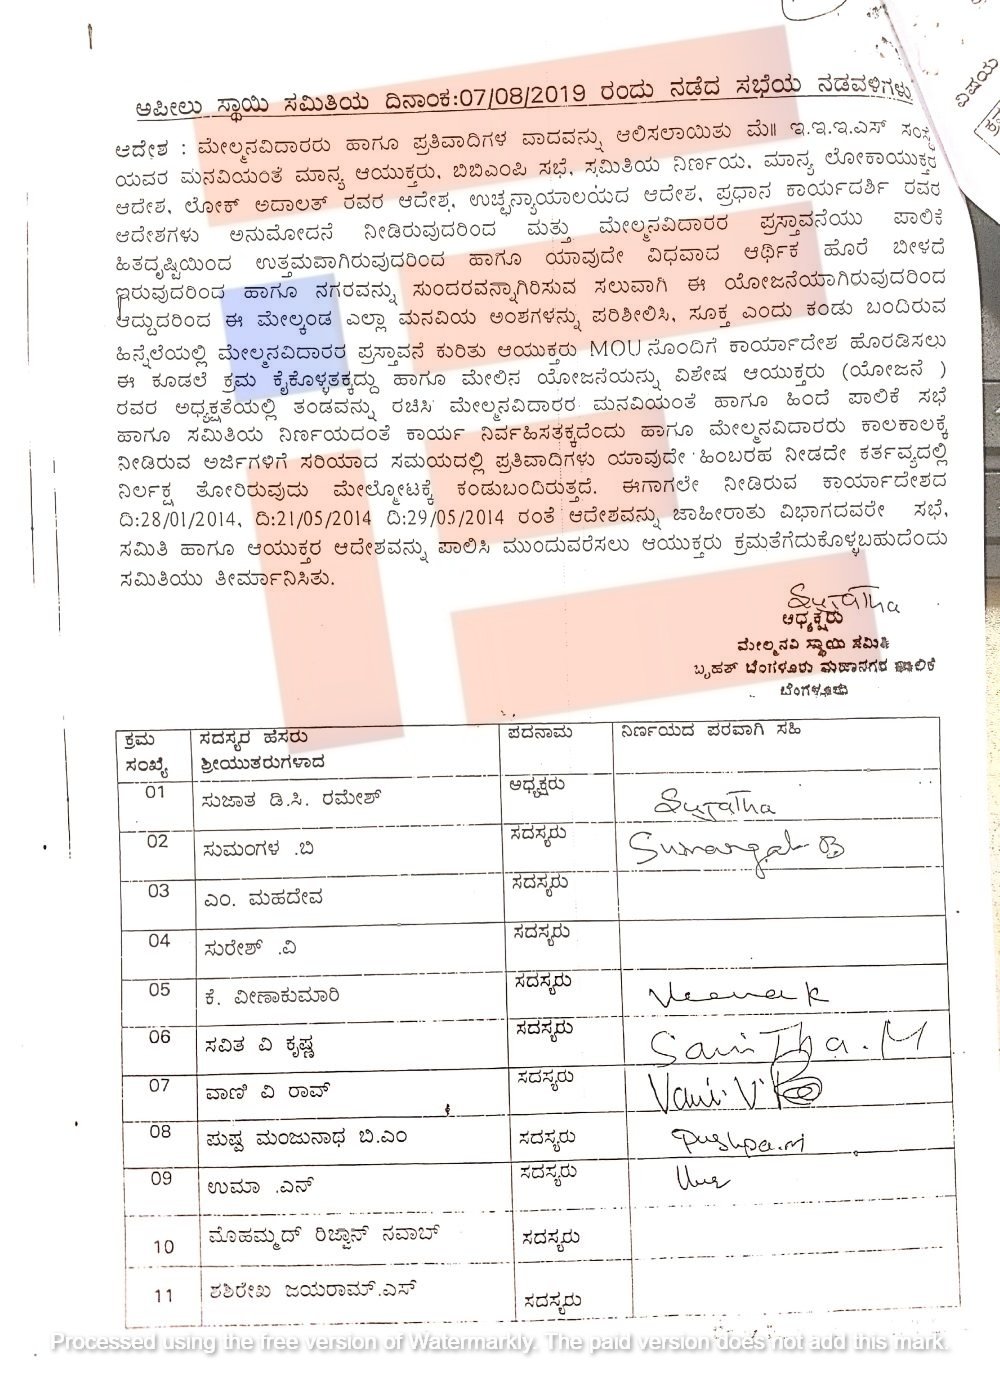 ಅಪೀಲು ಸ್ಥಾಯಿ ಸಮಿತಿಯ ದಿನಾಂಕ:07/08/2019 ರಂದು ನಡೆದ ಸಭೆಯ ನಡವಳಿಗಳು
ವಿಷಯ
ಆದೇಶ : ಮೇಲ್ಮನವಿದಾರರು ಹಾಗೂ ಪ್ರತಿವಾದಿಗಳ ವಾದವನ್ನು ಆಲಿಸಲಾಯಿತು ಮೆ॥ ಇ.ಇ.ಇ.ಎಸ್ ಸಂಸ್ಥೆ
ಯವರ ಮನವಿಯಂತೆ ಮಾನ್ಯ ಆಯುಕ್ತರು, ಬಿಬಿಎಂಪಿ ಸಭೆ, ಸಮಿತಿಯ ನಿರ್ಣಯ, ಮಾನ್ಯ ಲೋಕಾಯುಕ್ತರ
ಆದೇಶ, ಲೋಕ್ ಅದಾಲತ್ ರವರ ಆದೇಶ, ಉಚ್ಛನ್ಯಾಯಾಲಯದ ಆದೇಶ, ಪ್ರಧಾನ ಕಾರ್ಯದರ್ಶಿ ರವರ
ಆದೇಶಗಳು ಅನುಮೋದನೆ ನೀಡಿರುವುದರಿಂದ ಮತ್ತು ಮೇಲ್ಮನವಿದಾರರ ಪ್ರಸ್ತಾವನೆಯು ಪಾಲಿಕೆ
ಹಿತದೃಷ್ಟಿಯಿಂದ ಉತ್ತಮವಾಗಿರುವುದರಿಂದ ಹಾಗೂ ಯಾವುದೇ ವಿಧವಾದ ಆರ್ಥಿಕ ಹೊರೆ ಬೀಳದೆ
ಇರುವುದರಿಂದ ಹಾಗೂ ನಗರವನ್ನು ಸುಂದರವನ್ನಾಗಿರಿಸುವ ಸಲುವಾಗಿ ಈ ಯೋಜನೆಯಾಗಿರುವುದರಿಂದ
ಆದ್ದುದರಿಂದ ಈ ಮೇಲ್ಕಂಡ ಎಲ್ಲಾ ಮನವಿಯ ಅಂಶಗಳನ್ನು ಪರಿಶೀಲಿಸಿ, ಸೂಕ್ತ ಎಂದು ಕಂಡು ಬಂದಿರುವ
ಹಿನ್ನೆಲೆಯಲ್ಲಿ ಮೇಲ್ಮನವಿದಾರರ ಪ್ರಸ್ತಾವನೆ ಕುರಿತು ಆಯುಕ್ತರು MOU ನೊಂದಿಗೆ ಕಾರ್ಯಾದೇಶ ಹೊರಡಿಸಲು
ಈ ಕೂಡಲೆ ಕ್ರಮ ಕೈಕೊಳ್ಳತಕ್ಕದ್ದು ಹಾಗೂ ಮೇಲಿನ ಯೋಜನೆಯನ್ನು ವಿಶೇಷ ಆಯುಕ್ತರು (ಯೋಜನೆ )
ರವರ ಅಧ್ಯಕ್ಷತೆಯಲ್ಲಿ ತಂಡವನ್ನು ರಚಿಸಿ ಮೇಲ್ಮನವಿದಾರರ ಮನವಿಯಂತೆ ಹಾಗೂ ಹಿಂದೆ ಪಾಲಿಕೆ ಸಭೆ
ಹಾಗೂ ಸಮಿತಿಯ ನಿರ್ಣಯದಂತೆ ಕಾರ್ಯ ನಿರ್ವಹಿಸತಕ್ಕದೆಂದು ಹಾಗೂ ಮೇಲ್ಮನವಿದಾರರು ಕಾಲಕಾಲಕ್ಕೆ
ನೀಡಿರುವ ಅರ್ಜಿಗಳಿಗೆ ಸರಿಯಾದ ಸಮಯದಲ್ಲಿ ಪ್ರತಿವಾದಿಗಳು ಯಾವುದೇ ಹಿಂಬರಹ ನೀಡದೇ ಕರ್ತವ್ಯದಲ್ಲಿ
ನಿರ್ಲಕ್ಷ ತೋರಿರುವುದು ಮೇಲ್ನೋಟಕ್ಕೆ ಕಂಡುಬಂದಿರುತ್ತದೆ. ಈಗಾಗಲೇ ನೀಡಿರುವ ಕಾರ್ಯಾದೇಶದ
ದಿ:28/01/2014, ದಿ:21/05/2014 ದಿ:29/05/2014 ರಂತೆ ಆದೇಶವನ್ನು ಜಾಹೀರಾತು ವಿಭಾಗದವರೇ ಸಭೆ,
ಸಮಿತಿ ಹಾಗೂ ಆಯುಕ್ತರ ಆದೇಶವನ್ನು ಪಾಲಿಸಿ ಮುಂದುವರೆಸಲು ಆಯುಕ್ತರು ಕ್ರಮತೆಗೆದುಕೊಳ್ಳಬಹುದೆಂದು
ಸಮಿತಿಯು ತೀರ್ಮಾನಿಸಿತು.
Sujatha
ಅಧ್ಯಕ್ಷರು
ಮೇಲ್ಮನವಿ ಸ್ಥಾಯಿ ಸಮಿತಿ
ಬೃಹತ್ ಬೆಂಗಳೂರು ಮಹಾನಗರ ಪಾಲಿಕೆ
ಬೆಂಗಳೂರು
ಕ್ರಮ ಸದಸ್ಯರ ಹೆಸರು ಪದನಾಮ ನಿರ್ಣಯದ ಪರವಾಗಿ ಸಹಿ
ಸಂಖ್ಯೆ ಶ್ರೀಯುತರುಗಳಾದ
01 ಸುಜಾತ ಡಿ.ಸಿ. ರಮೇಶ್ ಅಧ್ಯಕ್ಷರು Sujatha
02 ಸುಮಂಗಳ .ಬಿ ಸದಸ್ಯರು Sumangala B
03 ಎಂ. ಮಹದೇವ ಸದಸ್ಯರು
04 ಸುರೇಶ್ .ವಿ ಸದಸ್ಯರು
05 ಕೆ. ವೀಣಾಕುಮಾರಿ ಸದಸ್ಯರು Veena k
06 ಸವಿತ ವಿ ಕೃಷ್ಣ ಸದಸ್ಯರು Savitha.M
07 ವಾಣಿ ವಿ ರಾವ್ ಸದಸ್ಯರು Vani.V Rao
08 ಪುಷ್ಪ ಮಂಜುನಾಥ ಬಿ.ಎಂ ಸದಸ್ಯರು Pushpa.m
09 ಉಮಾ .ಎನ್ ಸದಸ್ಯರು Uma
10 ಮೊಹಮ್ಮದ್ ರಿಜ್ವಾನ್ ನವಾಬ್ ಸದಸ್ಯರು
11 ಶಶಿರೇಖ ಜಯರಾಮ್.ಎಸ್ ಸದಸ್ಯರು
Processed using the free version of Watermarkly. The paid version does not add this mark.